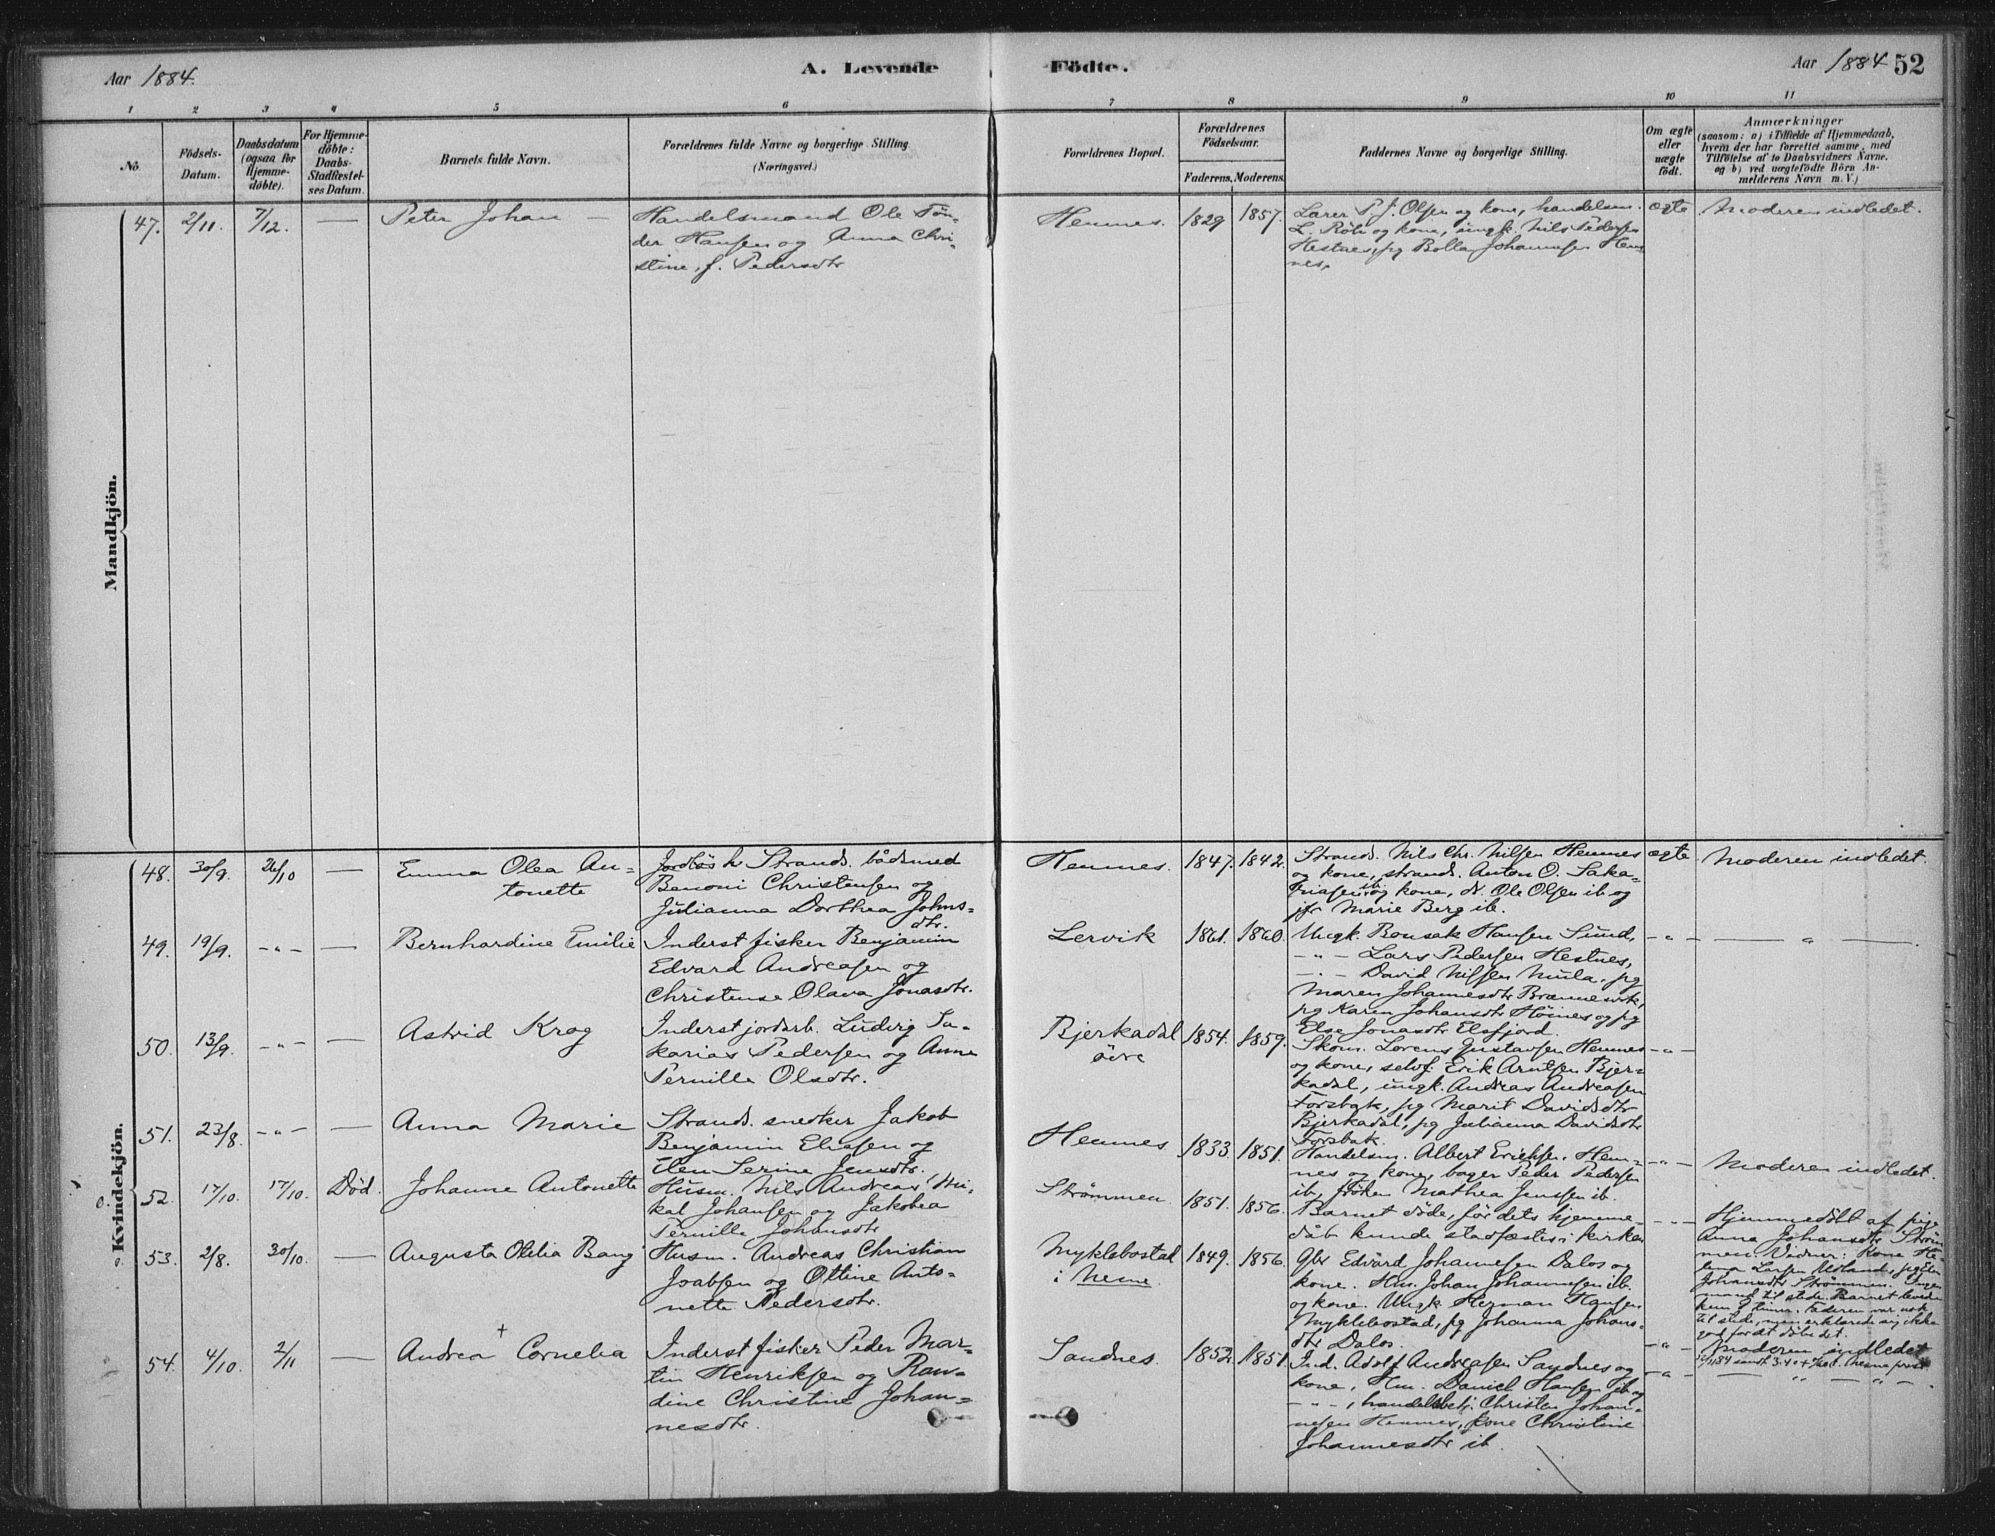 Aar 1884.
A. Levende
Födte.
Aar 1884 52
1 2 3 4 5 6 7 8 9 10 11
No. Födsels-Datum. Daabsdatum (ogsaa for Hjemme-döbte). For Hjemme-döbte: Daabs-Stadfæstel-ses Datum. Barnets fulde Navn. Forældrenes fulde Navne og borgerlige Stilling (Næringsvei.)
Forældrenes Bopæl. Forældrenes Födselsaar. Faderens. Moderens. Faddernes Navne og borgerlige Stilling. Om ægte eller uægte födt. Anmærkninger (saasom: a) i Tilfælde af Hjemmedaab, hvem der har forrettet samme, med Tilföielse af to Daabsvidners Navne, og b) ved uægtefödte Börn An-melderens Navn m. V.)
Mandkjön.
47. 2/11 7/12. — Peter Johan — Handelsmand Ole Tøn-
der Hansen og Anna Chri-
stine, f. Pedersdtr
Hemnes. 1829 1857. Lærer P. J. Olsen og kone, handelsm.
L. og kone, ungk. Nils Pedersen
Hestnes, pg Bolla Johannsen Hem-
nes.
ægte Moderen indledet.
Kvindekjön.
48. 30/9. 26/10 — Emma Olea An-
tonette
Strands. bådsmed
Benoni Christensen og
Julianna Dorthea Johns-
dtr.
Hemnes. 1847. 1842. Strands. Nils Chr. Nilsen Hemnes
og kone, strands. Anton O. Saka-
riasen ib. og kone, Ole Olsen ib og
Marie Berg ib.
ægte Moderen indledet.
49. 19/9. -"- — Bernhardine Emilie Inderst fisker Benjamin
Edvard Andreasen og
Christense Olava Jonasdtr.
Lervik 1861. 1860. Ungk. Bonsak Hansen Sund,
-"- Lars Pedersen Hestnes,
-"- David Nilsen Mula, pg
Maren Johannesdtr Brennesvik,
pg Karen Johansdtr og pg
Else Jonasdtr Elsfjord.
-"- — " —
50. 13/9. -"- — Astrid Krog Inderst jordarb. Ludvig Sa-
karias Pedersen og Anne
Pernille Olsdtr.
Bjerkadal
øvre
1854. 1859. Skom. Lorens Gustavsen Hemnes
og kone, selvf. Erik Arntsen Bjer-
kadal, ungk. Andreas Andreasen
Forsbak, pg Marit Davidsdtr
Bjerkadal, pg Julianna Davidsdtr
Forsbak.
-"-
51. 23/8. -"- — Anna Marie Strands. snedker Jakob
Benjamin Eliasen og
Elen Serine Jensdtr.
Hemnes 1833. 1851. Handelsm. Albert Eriksen Hem-
nes og kone, bager Peder Pedersen
ib, frøken Mathea Jensen ib.
-"- Moderen indledet.
52. 17/10. 17/10. Død. Johanne Antonette Husm. Nils Andreas Mi-
kal Johansen og Jakobea
Pernille Johansdtr
Strømmen. 1851. 1856. Barnet døde, før dets hjemme-
dåb kunde stadfæstes i kirken
-"- Hjemmedøbt af pige
Anna Johansdtr Strøm-
men. Vidner: Kone He-
lena Larsen
Johansdtr Strømmen. Ingen
mand til stede. Barnet levede
kun timer. Faderen var nok
til stede, men erklærede sig ikke
god for at døbe det.
53. 2/8. 30/10. — Augusta Otelia Bang Husm. Andreas Christian
Joabsen og Ottine Anto-
nette Pedersdtr.
Myklebostad
i Nesne.
1849. 1856. Gbr Edvard Johannesen Dalos og
kone. Hm. Johan Johannesen ib.
og kone. Ungk. Herman Hansen
Myklebostad, pg Johanna Johans-
dtr Dalos.
-"- Moderen indledet
54. 4/10. 2/11 — Andrea Cornelia Inderst fisker Peder Mar-
tin Henriksen og Ran-
dine Christine Johan-
nesdtr.
Sandnes. 1852. 1851. Ind. Adolf Andreasen Sandnes og
kone, Hm. Daniel Hansen ib og
-"-, handelsbetj. Christen Johan-
nesen Hemnes, kone Christine
Johannesdtr ib.
-"- — " — " —